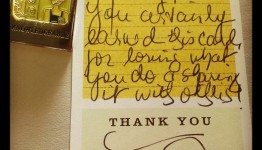 You certainly
earned this card
for loving what
you do & sharing
it with others!
THANK YOU